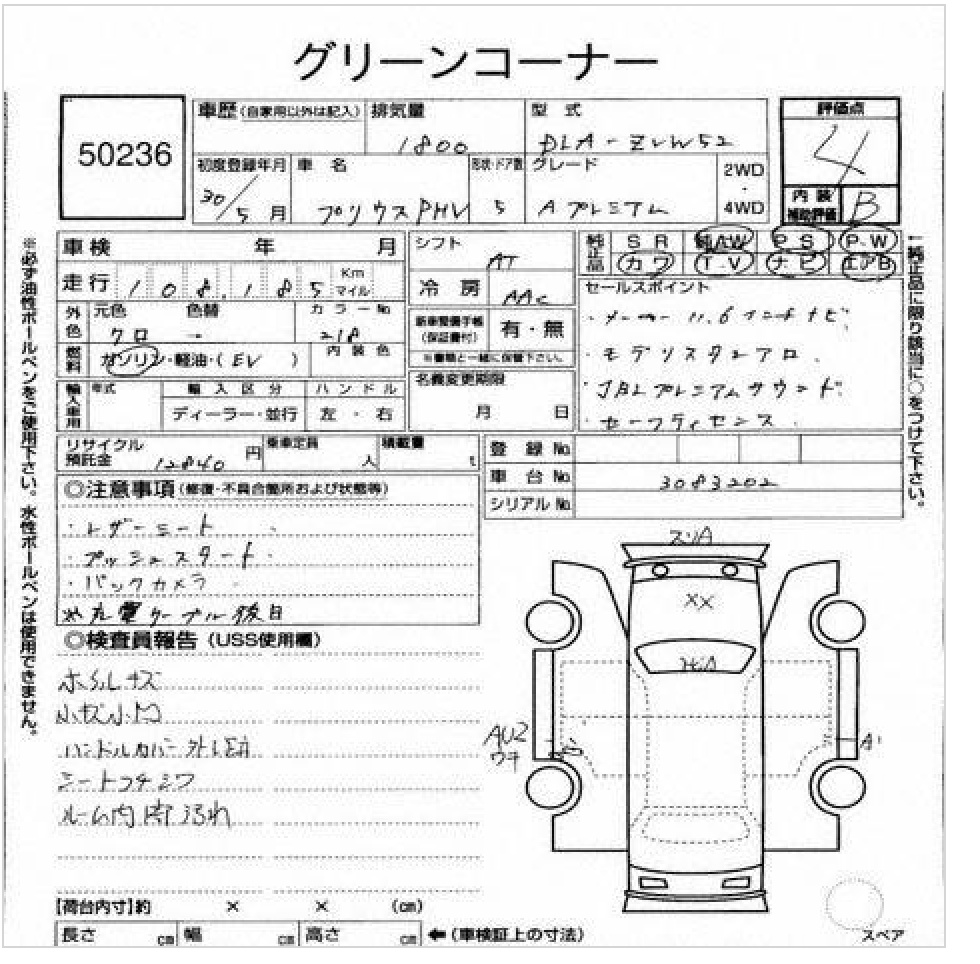 グリーンコーナー
50236
車歴(自家用以外は記入) 排気量 型式 評価点
1800 DLA-ZVW52 4
初度登録年月 車名 形状・ドア数 グレード 2WD・4WD 内装補助評価 B
30/5月 プリウスPHV 5 Aプレミアム
車検 年 月
走行 108,185 Km マイル
外色 元色 色替 カラーNo
クロ → 218
燃料 ガソリン・軽油・(EV) 内装色
輸入車用 年式 輸入区分 ハンドル
ディーラー・並行 左・右
シフト AT
冷房 AAC
新車整備手帳(保証書付) 有・無
※書類と一緒に保管下さい。
名義変更期限
月 日
純正品 SR 純AW PS P.W
カワ T.V ナビ エアB
セールスポイント
・メーカー11.6インチナビ
・モデリスタエアロ
・JBLプレミアムサウンド
・セーフティセンス
リサイクル預託金 12840円 乗車定員 人 積載量 t
登録No.
車台No. 3083202
シリアルNo.
◎注意事項(修復・不具合箇所および状態等)
・レザーシート
・プッシュスタート
・バックカメラ
※充電ケーブル後日
◎検査員報告(USS使用欄)
小キズ小凹
ハンドルカバー外し跡
シートコゲシワ
ルーム内 汚れ
スリA
XX
AU2
ウチ
A1
【荷台内寸】約 × × (cm)
長さ cm 幅 cm 高さ cm ←(車検証上の寸法)
スペア
※必ず油性ボールペンをご使用下さい。水性ボールペンは使用できません。
←純正品に限り該当に○をつけて下さい。